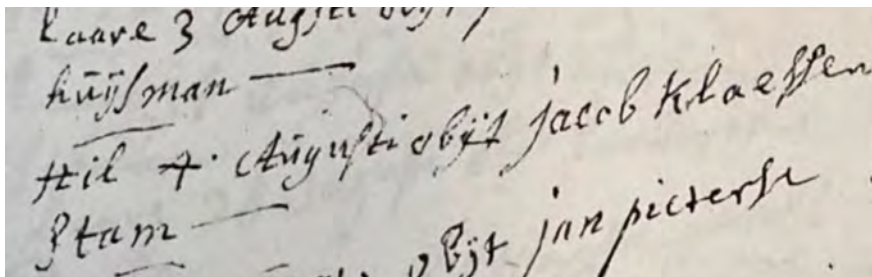 kaare 3 Augsti obijt
huijsman
stil 4 Augusti obijt jacob Klaessen
stam
obijt jan pieterse